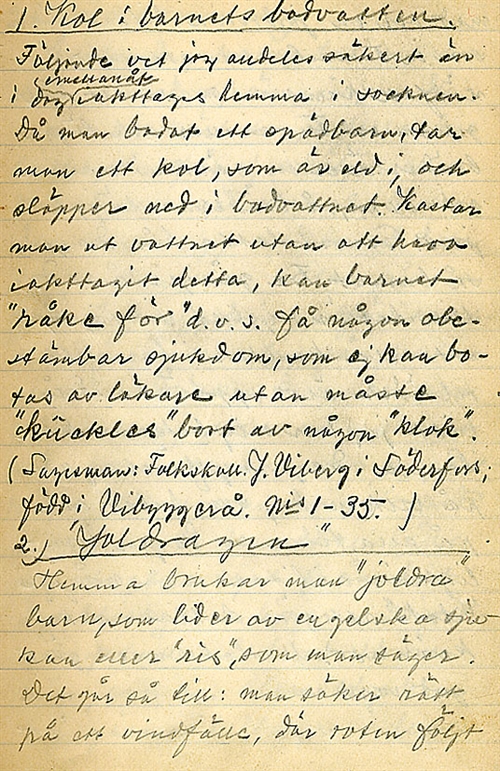 1. Kol i barnets badvatten.
Följande vet jag alldeles säkert än
imellanåt
i dag iakttages hemma i socknen.
Då man badat ett spädbarn, tar
man ett kol, som är eld i, och
släpper ned i badvattnet. Kastar
man ut vattnet utan att hava
iakttagit detta, kan barnet
"råke för" d.v.s. få någon obe-
stämbar sjukdom, som ej kan bo-
tas av läkare utan måste
"kückles" bort av någon "klok".
(Sagesman: Folkskoll. J. Viberg i Söderfors,
född i Vibyggerå. 1-35. )
2.) "Joldragen"
Hemma brukar man "joldra"
barn, som lider av engelska sju-
kan eller "ris", som man säger.
Det går så till: man söker rätt
på ett vindfälle, där roten följt